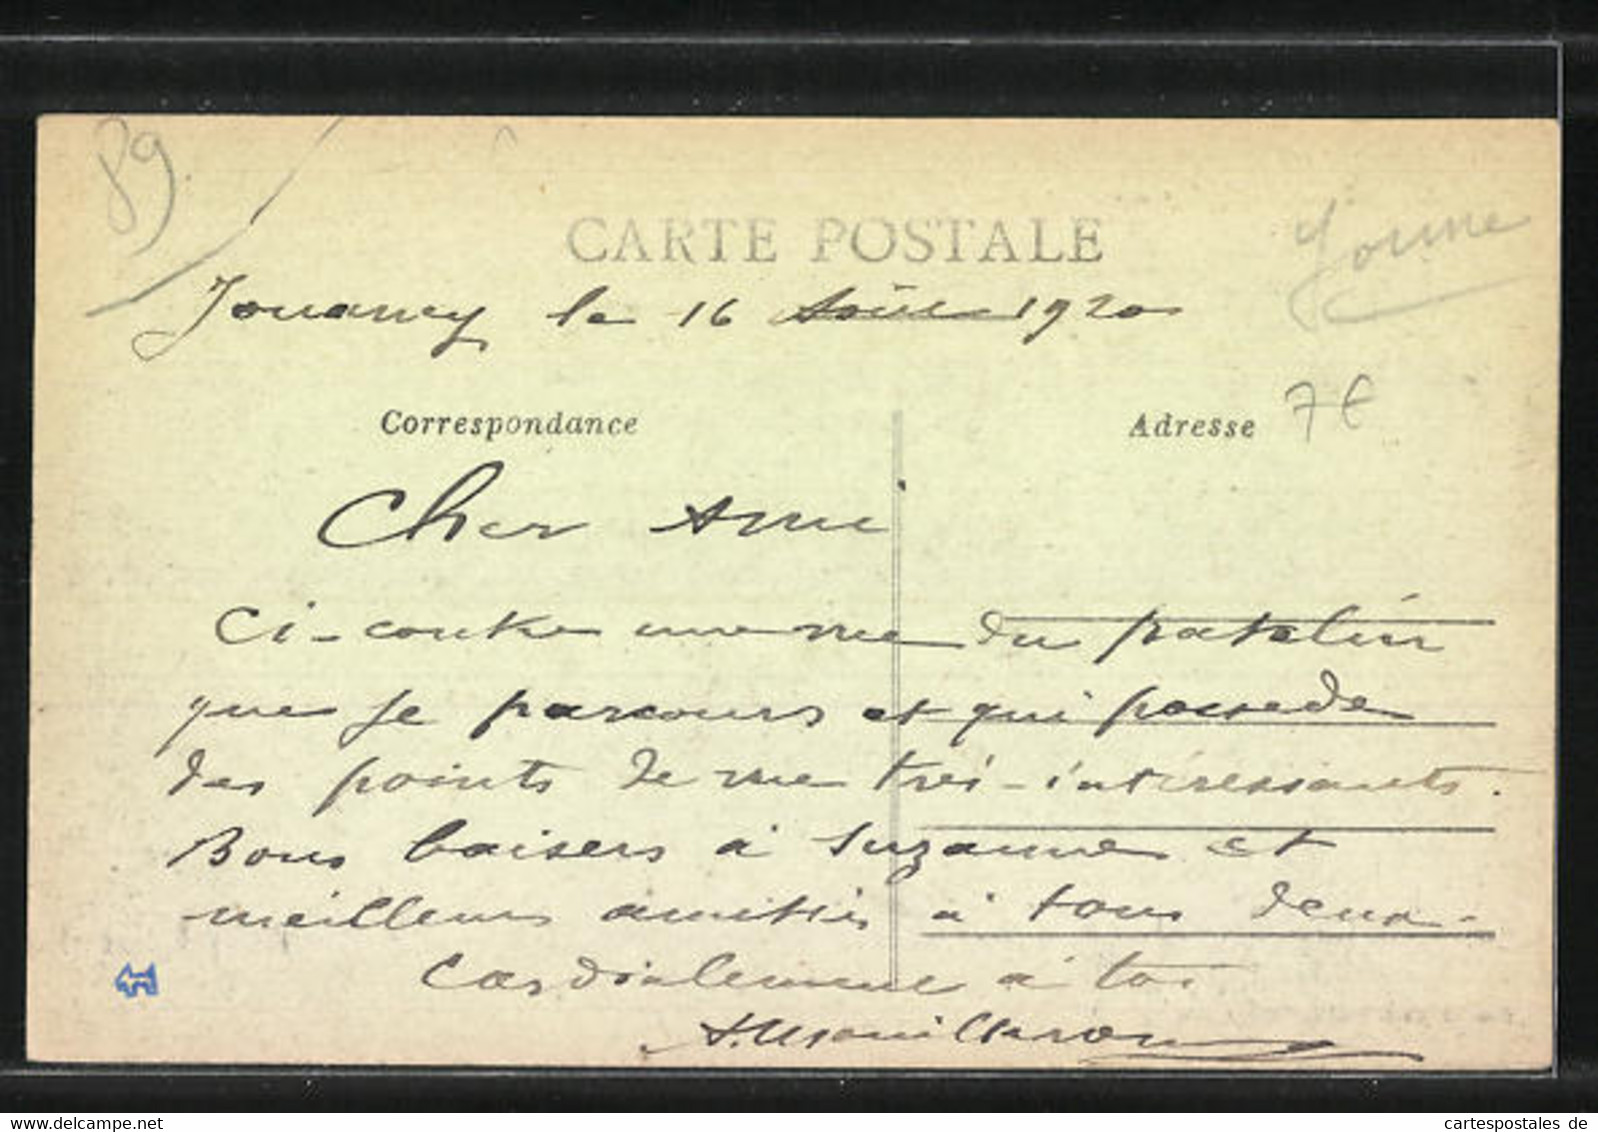 89
CARTE POSTALE
Yonne
Jouancy le 16 Août 1920
Correspondance
Adresse
7€
Cher Ami
Ci-contre une vue du patelin
que je parcours et qui possede
des points de vue très-intéressants.
Bons baisers à Suzanne et
meilleures amitiés à tous deux.
Cordialement à toi
www.delcampe.net
cartespostales de